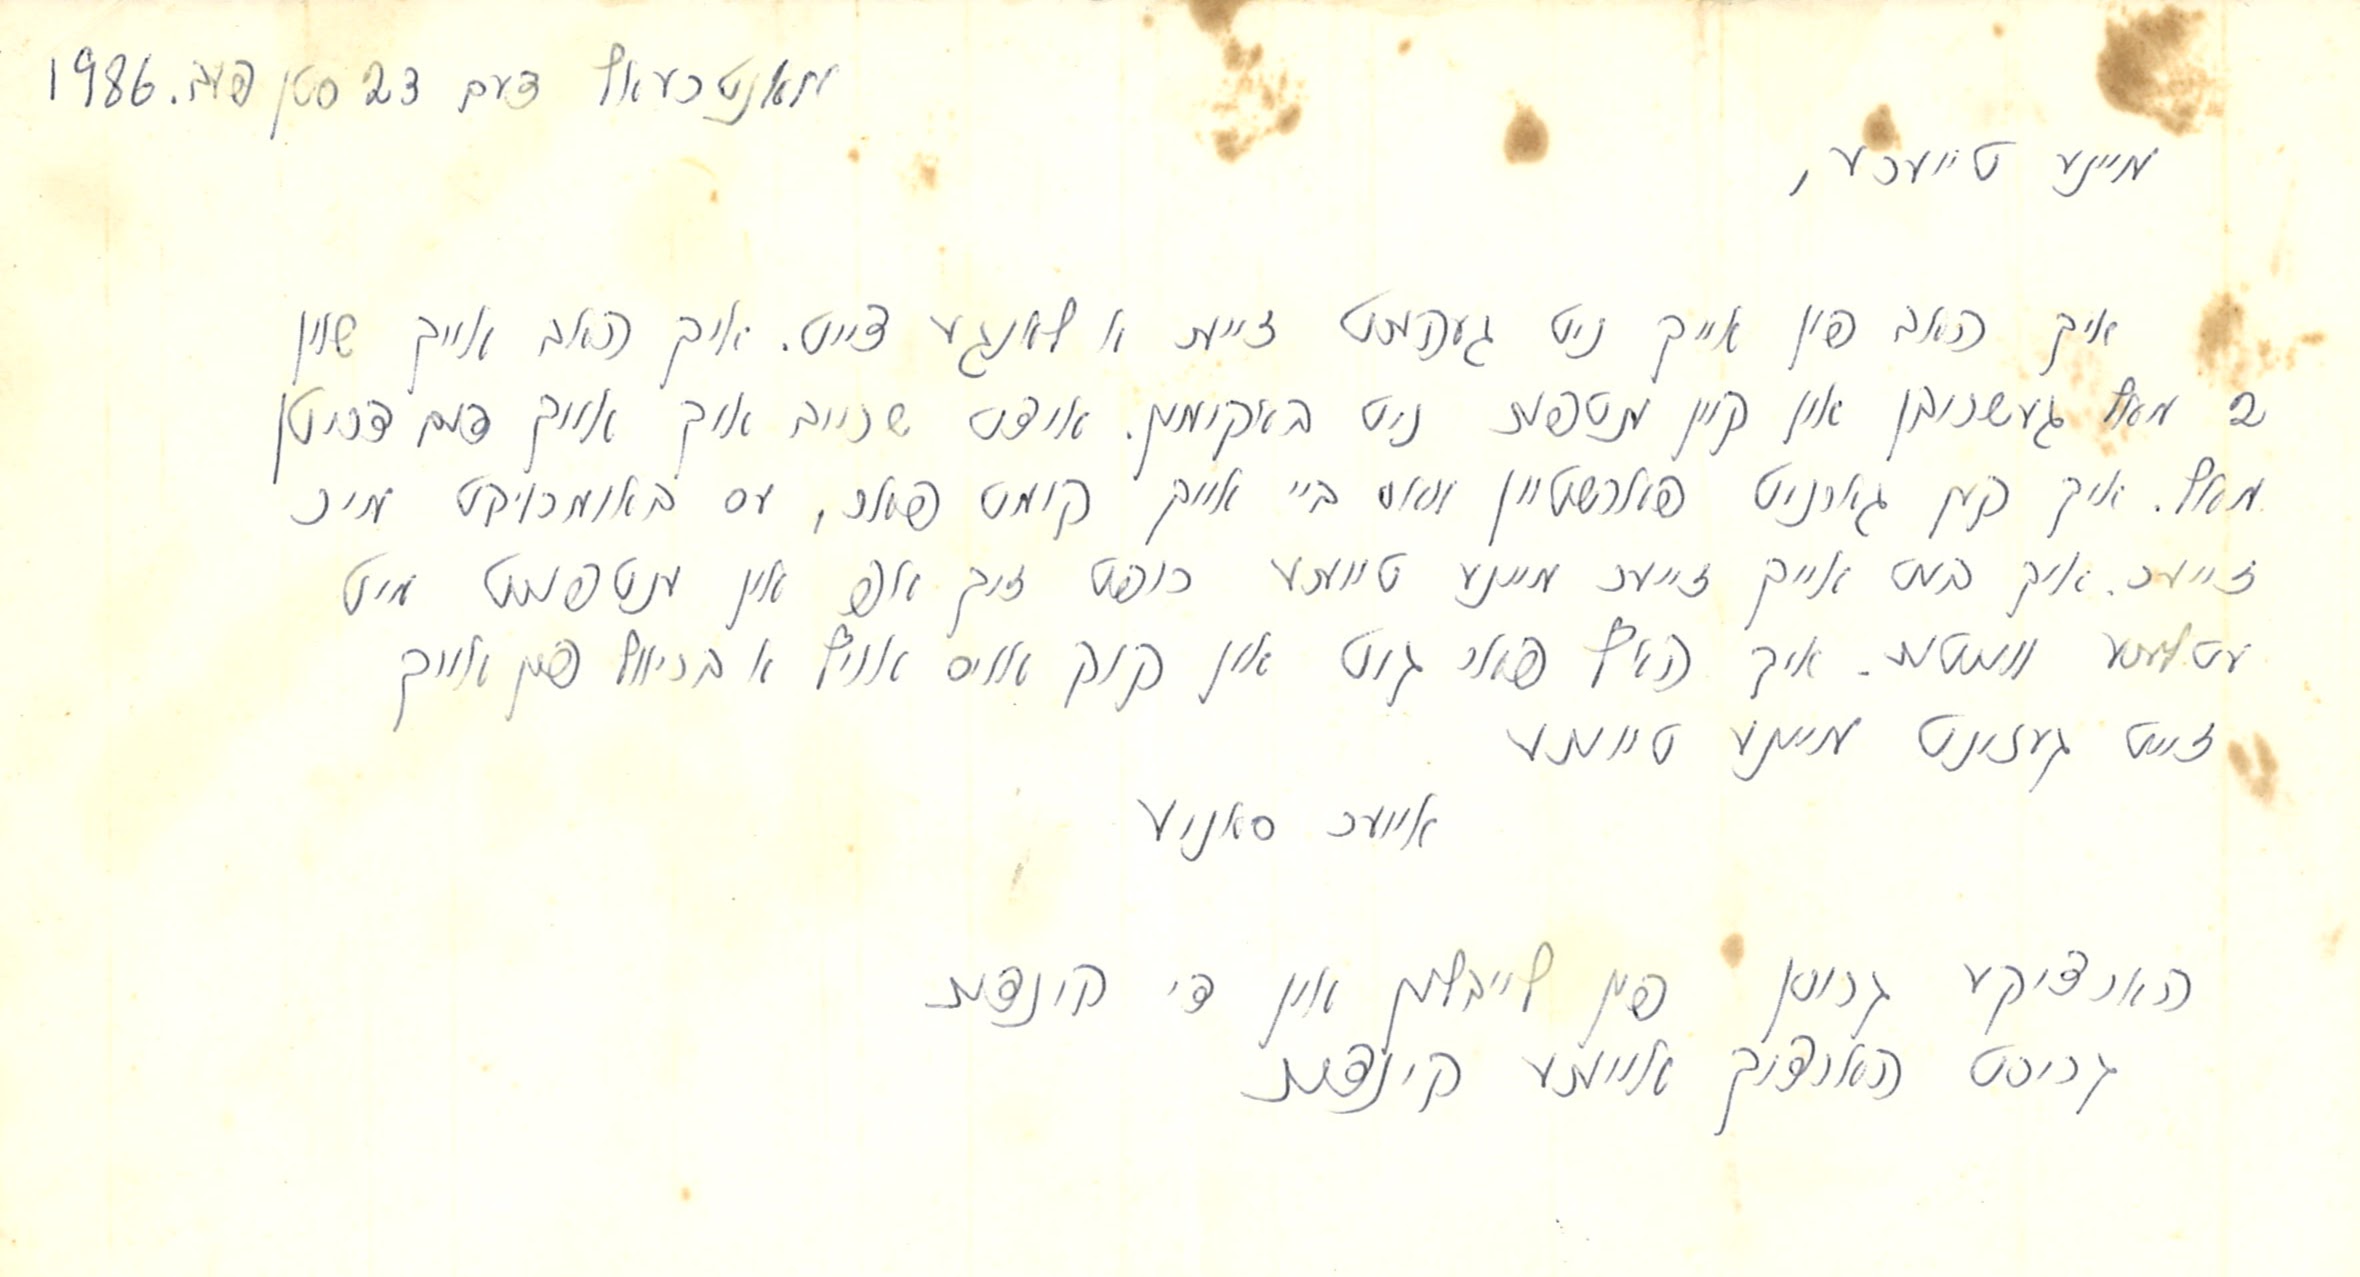 מאנטרעאל דעם 23 סטן פעב. 1986
מיינע טייערע,
איך האב פון אייך ניט געהערט זייער א לאנגע צייט. איך האב אייך שוין
2 מאל געשריבן און קיין ענטפער ניט באקומען. איצט שרייב איך אייך צום דריטן
מאל. איך קען גארניט פארשטיין וואס ביי אייך קומט פאר, עס באומרויקט מיר
זייער. איך בעט אייך זייער מיינע טייערע רופט זיך אפ און ענטפערט מיט
עטלעכע ווערטער. איך האלט פאר גוט און קוק אויס אויף א בריוול פון אייך
זייט געזונט מיינע טייערע
אייער סאניע
הארציקע גרוסן פון לייבלען און די קינדער
גריסט הארציך אייערע קינדער